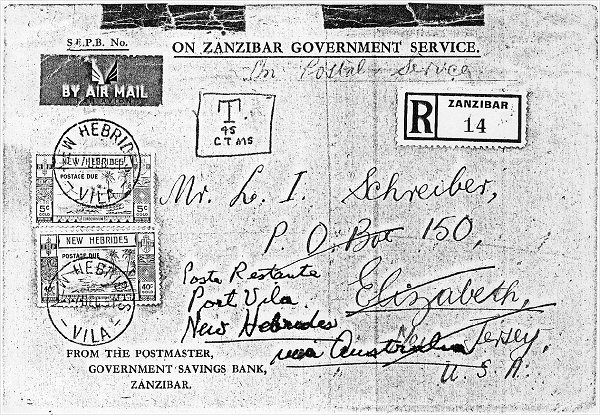 S.E.P.B. No.
ON ZANZIBAR GOVERNMENT SERVICE.
In Postal Service
BY AIR MAIL
T.
45
CTMS
R
ZANZIBAR
14
NEW HEBRIDES
VILA
NEW HEBRIDES
POSTAGE DUE
5c
GOLD
5c
GOLD
NEW HEBRIDES
POSTAGE DUE
40c
GOLD
40c
GOLD
NEW HEBRIDES
VILA
Mr. L. I. Schreiber,
P. O. Box 150,
Elizabeth,
New Jersey,
U. S. A.
Poste Restante
Port Vila
New Hebrides
via Australia
FROM THE POSTMASTER,
GOVERNMENT SAVINGS BANK,
ZANZIBAR.